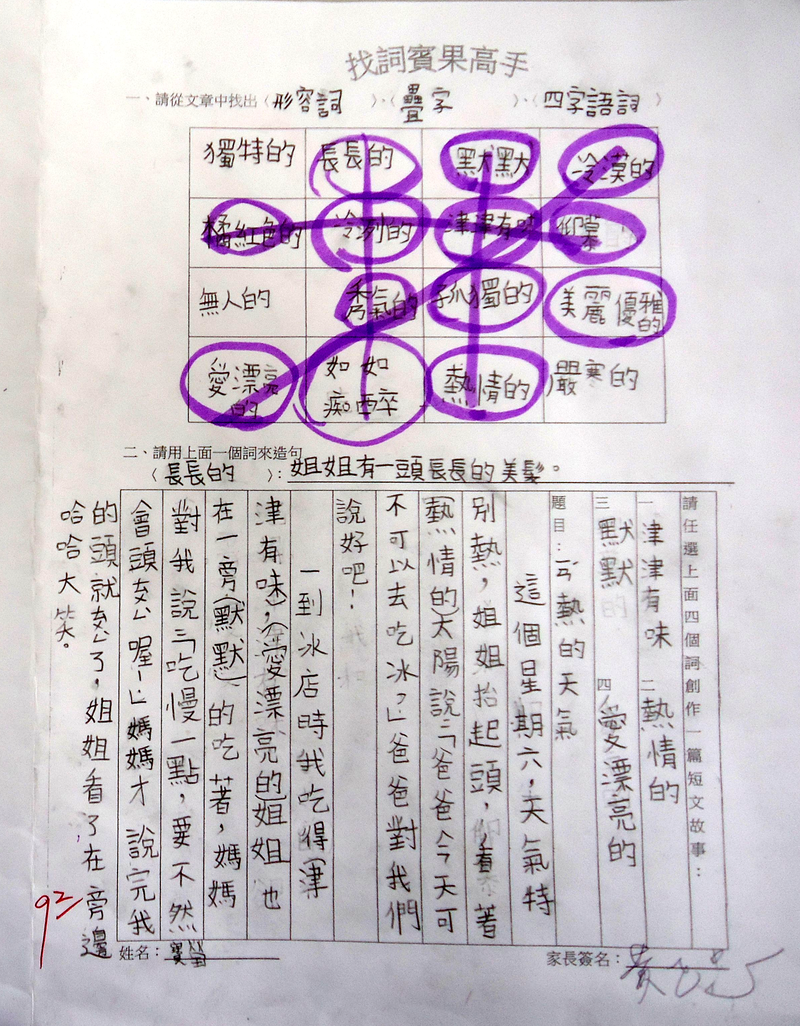 找詞賓果高手
一、請從文章中找出（形容詞）、（疊字）、（四字語詞）
獨特的 長長的 默默 冷漠的
橘紅色的 冷冽的 津津有味
無人的 秀氣的 孤獨的 美麗優雅的
愛漂亮的 如如痴醉 熱情的 嚴寒的
二、請用上面一個詞來造句
（長長的）：姐姐有一頭長長的美髮。
請任選上面四個詞創作一篇短文故事：
一 津津有味 二 熱情的
三 默默 四 愛漂亮的
題目：ㄎㄨ熱的天氣
這個星期六，天氣特
別熱，姐姐抬起頭，看著
(熱情的)太陽說：「爸爸今天可
不可以去吃冰？」爸爸對我們
說好吧！
一到冰店時我吃得(津
津有味)，(愛漂亮的)姐姐也
在一旁(默默)的吃著，媽媽
對我說：「吃慢一點，要不然
會頭ㄊㄨㄥˋ喔！」媽媽才說完我
的頭就ㄊㄨㄥˋ了，姐姐看了在旁邊
哈哈大笑。
92
姓名：
家長簽名：